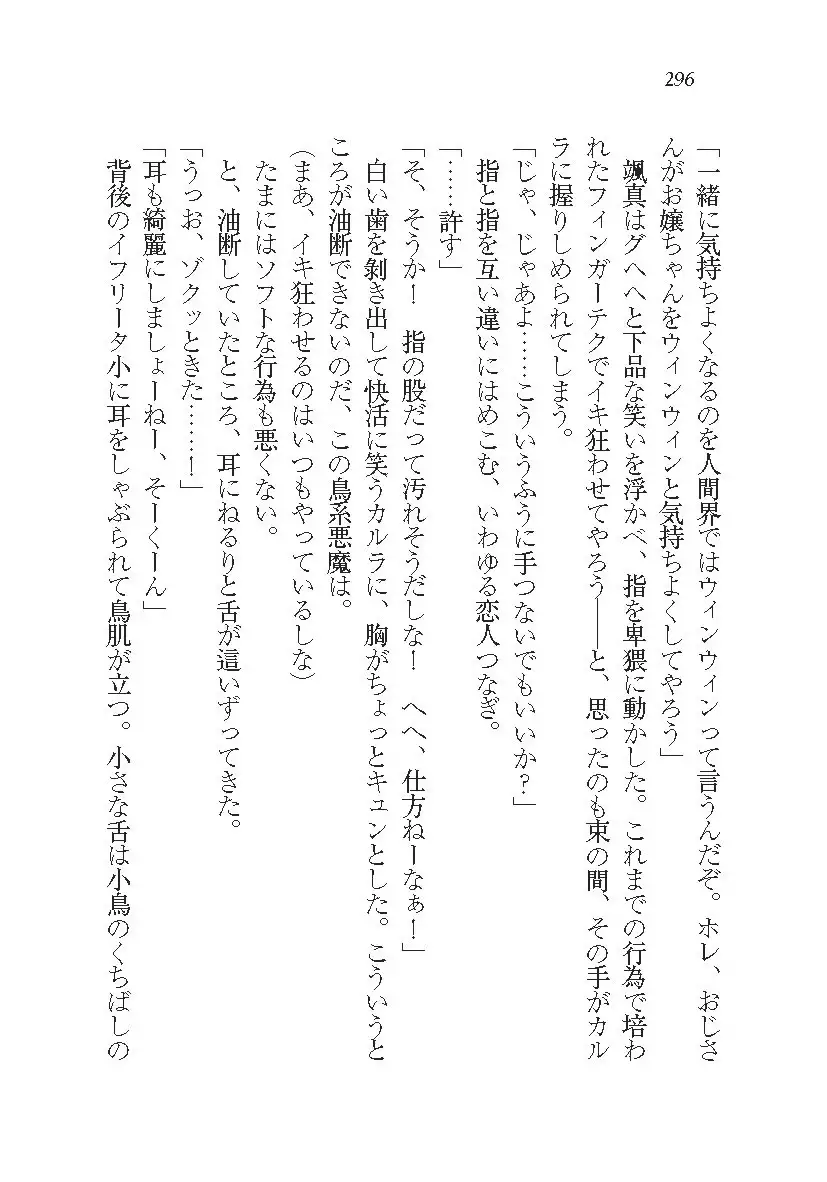 296
「一緒に気持ちよくなるのを人間界ではウィンウィンって言うんだぞ。ホレ、おじさ
んがお嬢ちゃんをウィンウィンと気持ちよくしてやろう」
颯真はグヘヘと下品な笑いを浮かべ、指を卑猥に動かした。これまでの行為で培わ
れたフィンガーテクでイキ狂わせてやろう――と、思ったのも束の間、その手がカル
ラに握りしめられてしまう。
「じゃ、じゃあよ……こういうふうに手つないでもいいか？」
指と指を互い違いにはめこむ、いわゆる恋人つなぎ。
「……許す」
「そ、そうか！　指の股だって汚れそうだしな！　へへ、仕方ねーなぁ！」
白い歯を剝き出して快活に笑うカルラに、胸がちょっとキュンとした。こういうと
ころが油断できないのだ、この鳥系悪魔は。
（まあ、イキ狂わせるのはいつもやっているしな）
たまにはソフトな行為も悪くない。
と、油断していたところ、耳にねるりと舌が這いずってきた。
「うっお、ゾクッときた……！」
「耳も綺麗にしましょーねー、そーくーん」
背後のイフリータ小に耳をしゃぶられて鳥肌が立つ。小さな舌は小鳥のくちばしの